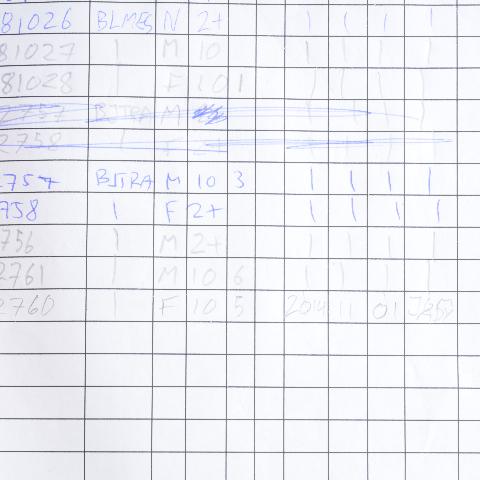 81026 BLMES N 2+ | | | |
81027 | M 10 | | | |
81028 | F 10 1 | | | |
2757 BJTRA M
2758 |
757 BJTRA M 10 3 | | | |
758 | F 2+ | | | |
756 | M 2+ | | | |
2761 | M 10 6 | | | |
2760 | F 10 5 2014 11 01